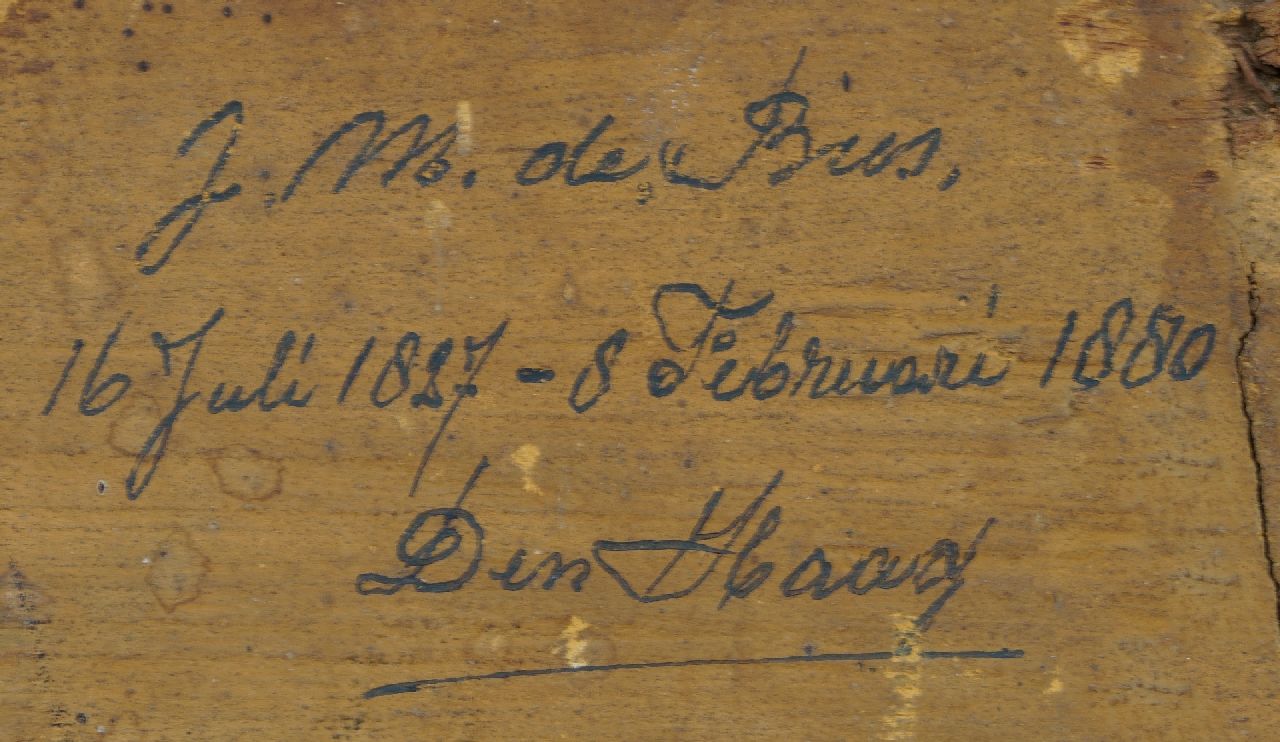 J. M. de Bius.
16 Juli 1827 - 8 Februari 1880
Den Haag